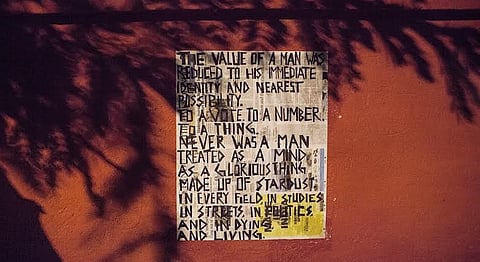 THE VALUE OF A MAN WAS
REDUCED TO HIS IMMEDIATE
IDENTITY AND NEAREST
POSSIBILITY.
TO A VOTE. TO A NUMBER.
TO A THING.
NEVER WAS A MAN
TREATED AS A MIND
AS A GLORIOUS THING
MADE UP OF STARDUST.
IN EVERY FIELD, IN STUDIES,
IN STREETS, IN POLITICS,
AND IN DYING
AND LIVING.